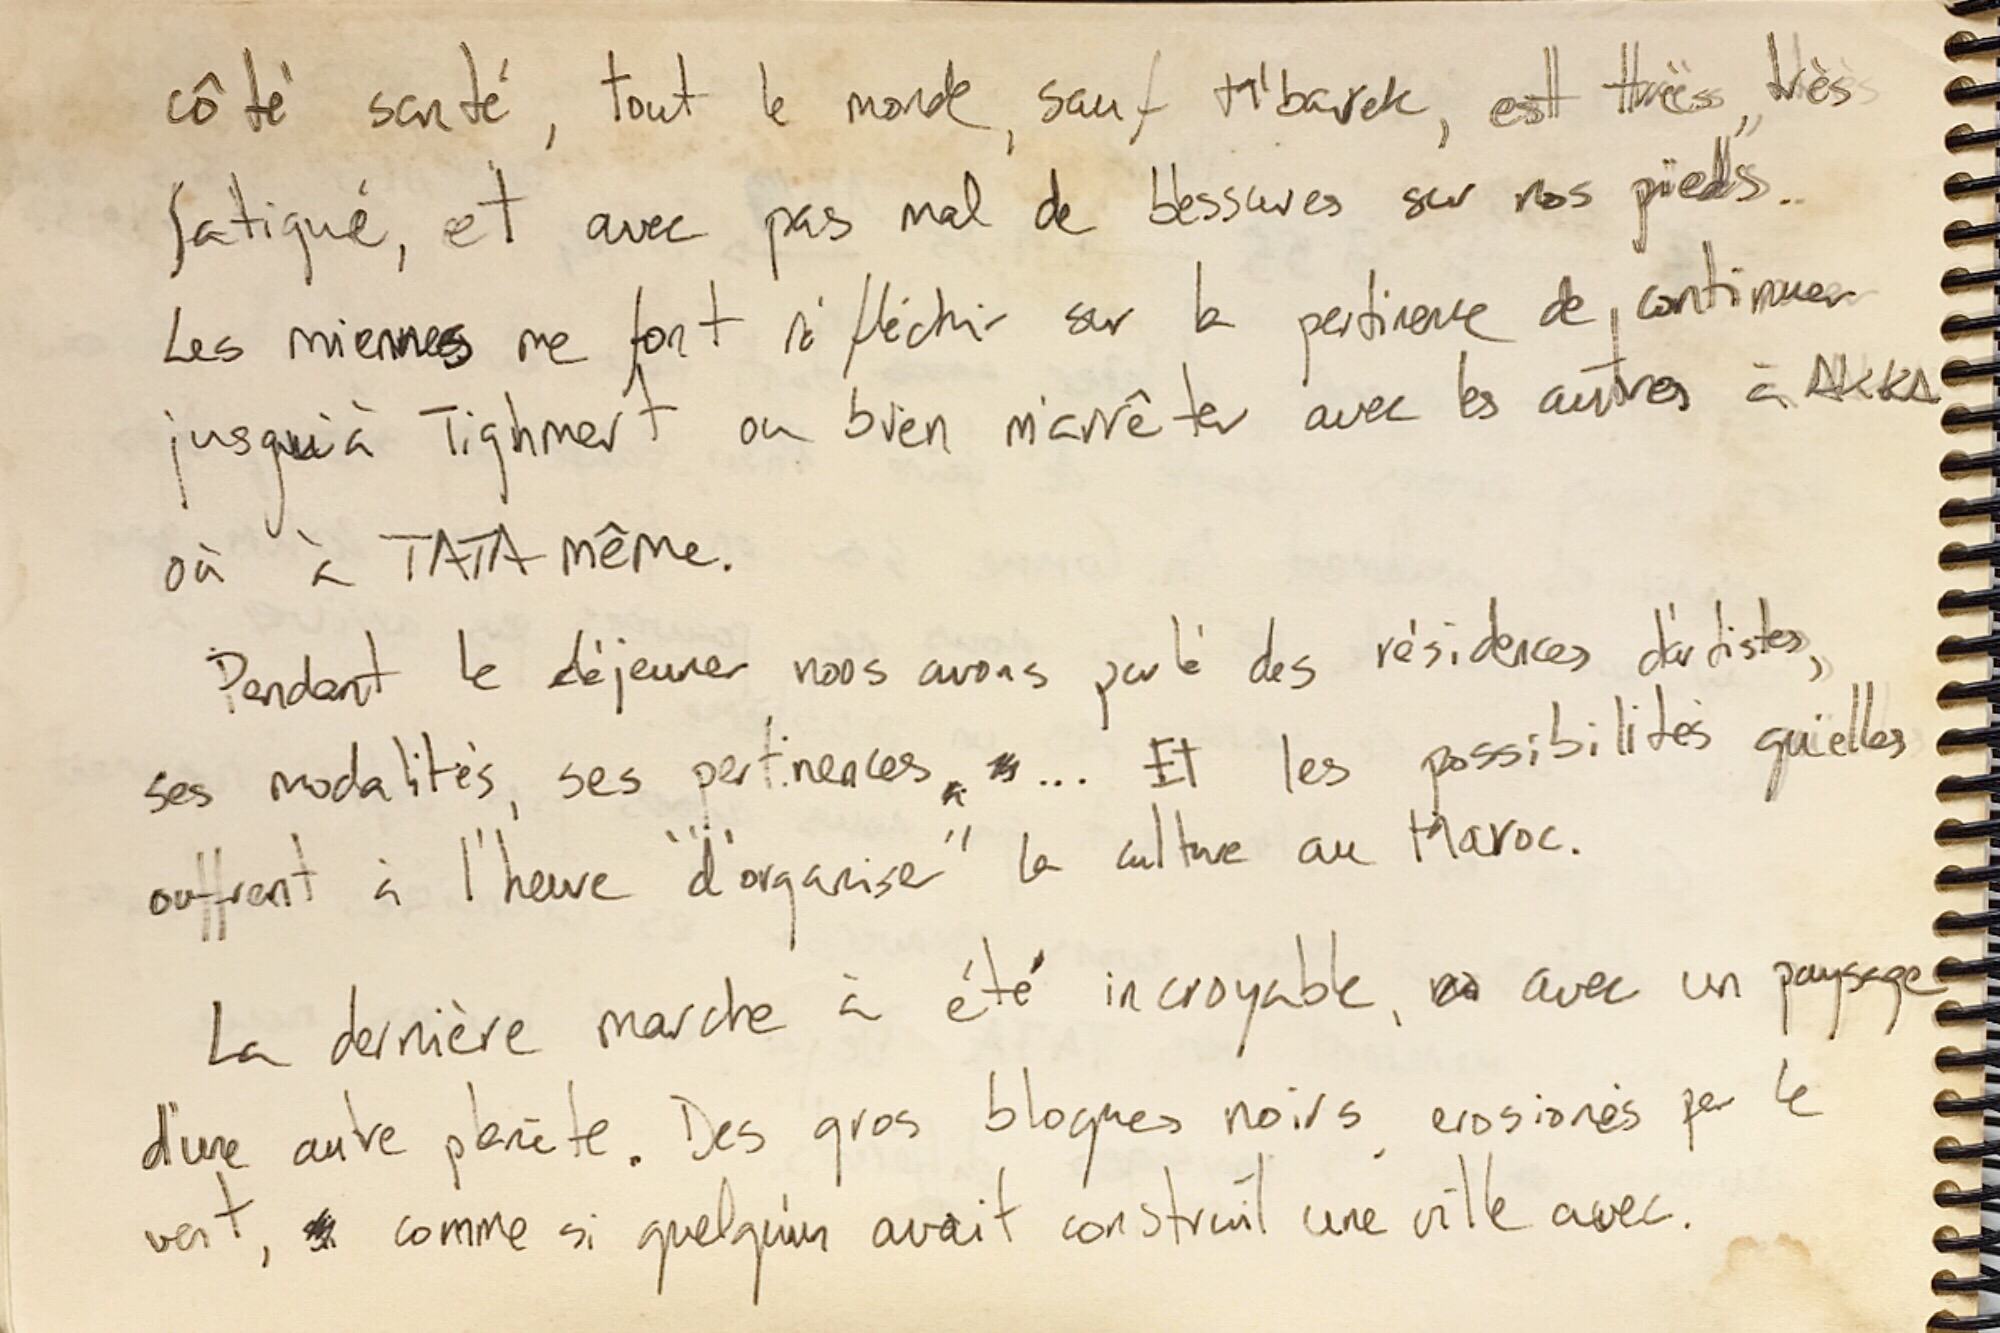 côté santé, tout le monde, sauf M'barek, est très, très
fatigué, et avec pas mal de blessures sur nos pieds..
Les miennes me font réfléchir sur la pertinence de continuer
jusqu'à Tighmert ou bien m'arrêter avec les autres à AKKA
où à TATA même.
Pendant le déjeuner nous avons parlé des résidences d'artistes,
ses modalités, ses pertinences, ... Et les possibilités qu'elles
ouffrent à l'heure "d'organiser" la culture au Maroc.
La dernière marche à été incroyable, avec un paysage
d'une autre planète. Des gros bloques noirs, erosionés par le
vent, comme si quelqu'un avait construit une ville avec.